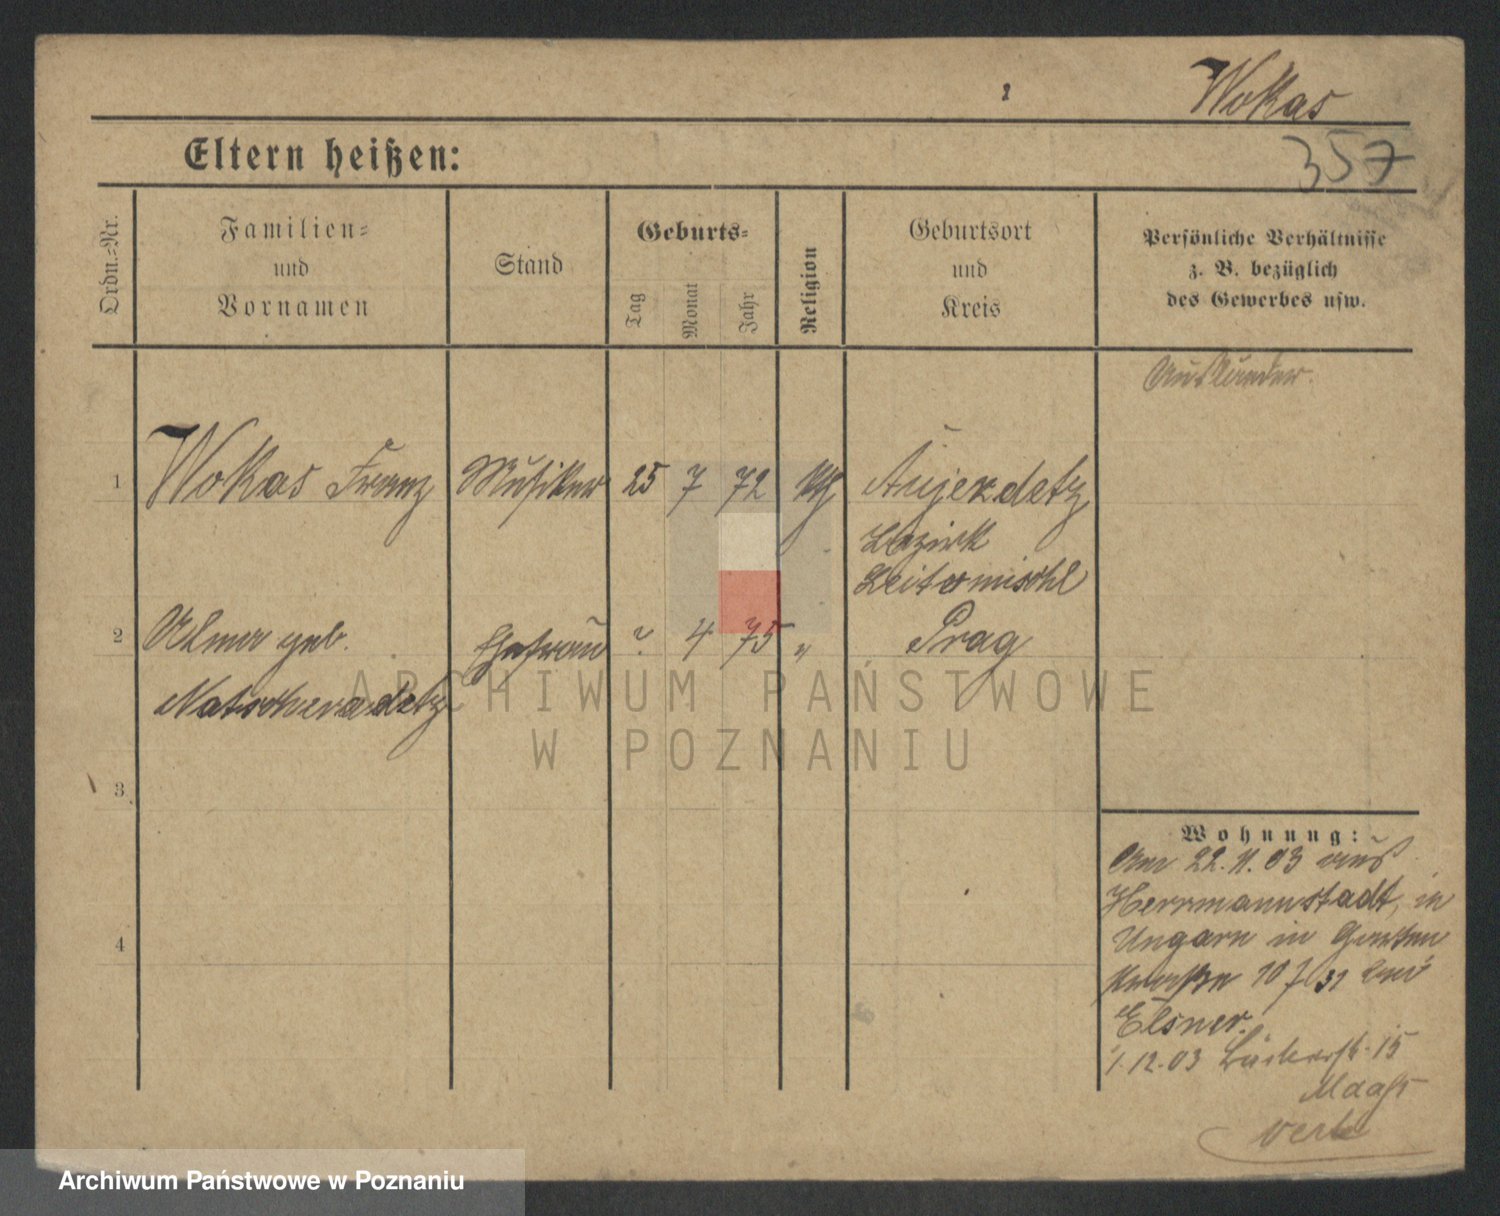 Wokas
357
Eltern heißen:
Ordn.-Nr.
Familien-
und
Vornamen
Stand
Geburts-
Tag
Monat
Jahr
Religion
Geburtsort
und
Kreis
Persönliche Verhältnisse
z. B. bezüglich
des Gewerbes usw.
Ausländer.
1 Wokas Franz Musiker 25 7 72 kth Aujezdetz
Bezirk
Leitomischl
2 geb. Ehefrau ? 4 75 " Prag
Natscheradetz
3
4
Wohnung:
Am 22.11.03 aus
Herrmannstadt, in
Ungarn in Garten
straße 10 bei
Elsner.
1.12.03 Bäckerstr. 15
Maaß
verte
ARCHIWUM PAŃSTWOWE
W POZNANIU
Archiwum Państwowe w Poznaniu